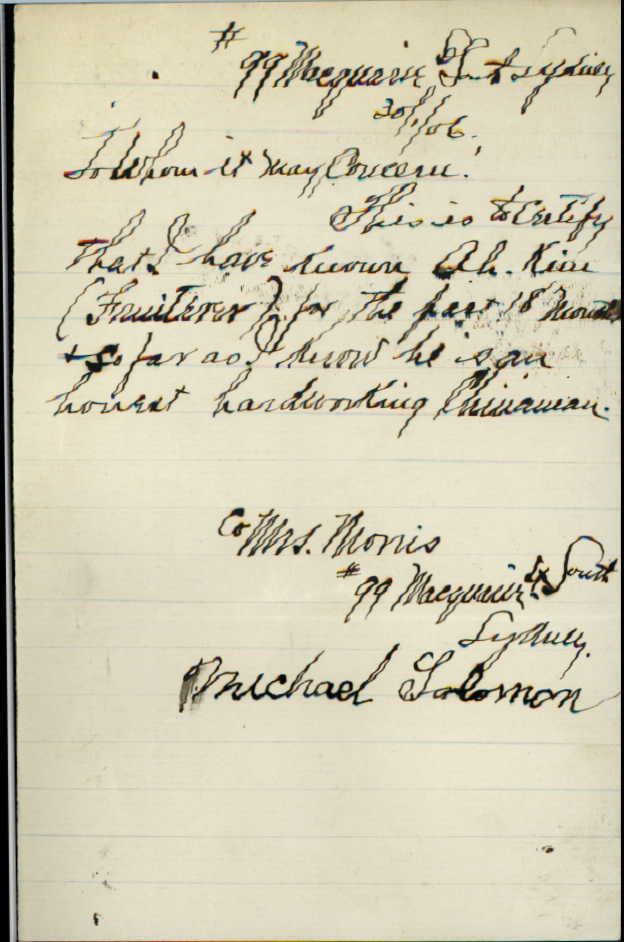 # 99 Macquarie St South Sydney
30/1/06.
To Whom it May Concern!
This is to Certify
that I have known Ah. Kim
(Fruiterer) for the past 18 Months
+ so far as I know he is an
honest hardworking Chinaman.
Co Mrs. Morris
# 99 Macquarie St South
Sydney.
Michael Solomon